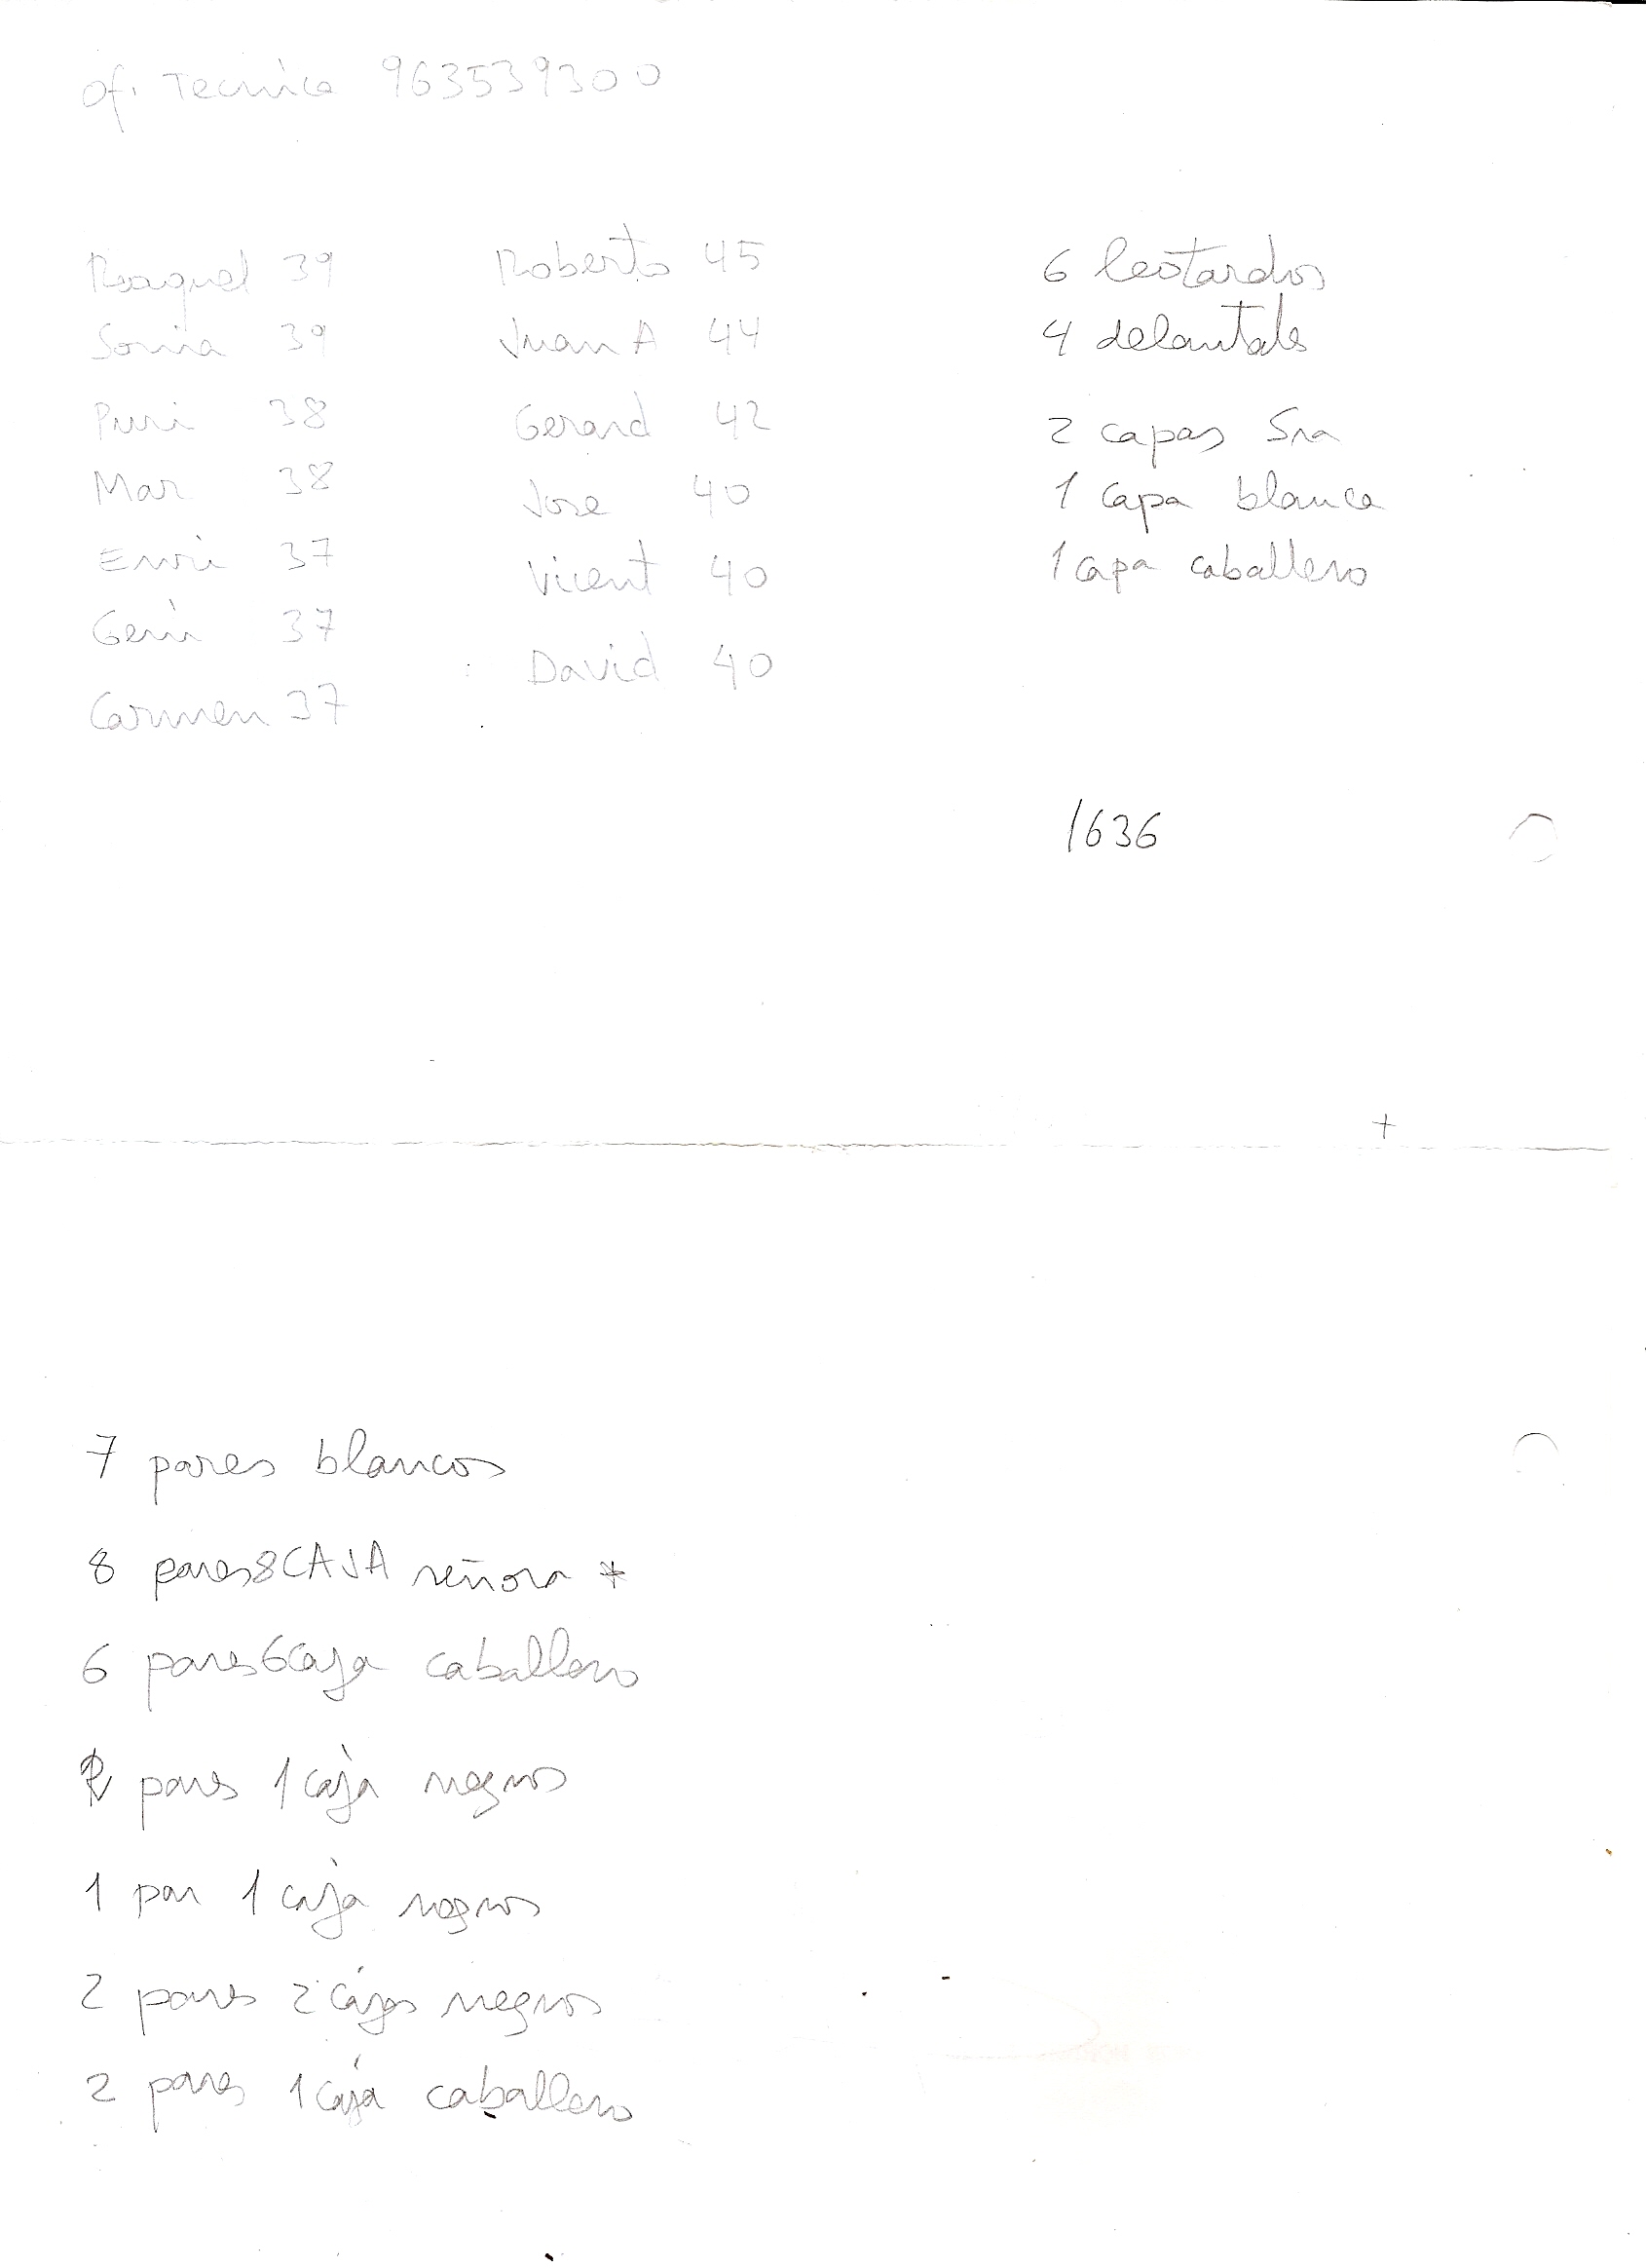 of. Tecnica 963539300
Raaquel 39
Sonia 39
Puri 38
Mar 38
Enri 37
Geni 37
Carmen 37
Roberto 45
Juan A 44
Gerard 42
Jose 40
Vicent 40
David 40
6 leotardos
4 delantals
2 capas Sra
1 capa blanca
1 capa caballero
1636
7 pares blancos
8 pares 8 CAJA señora *
6 pares 6 caja caballero
pares 1 caja negros
1 par 1 caja negros
2 pares 2 cajas negros
2 pares 1 caja caballero